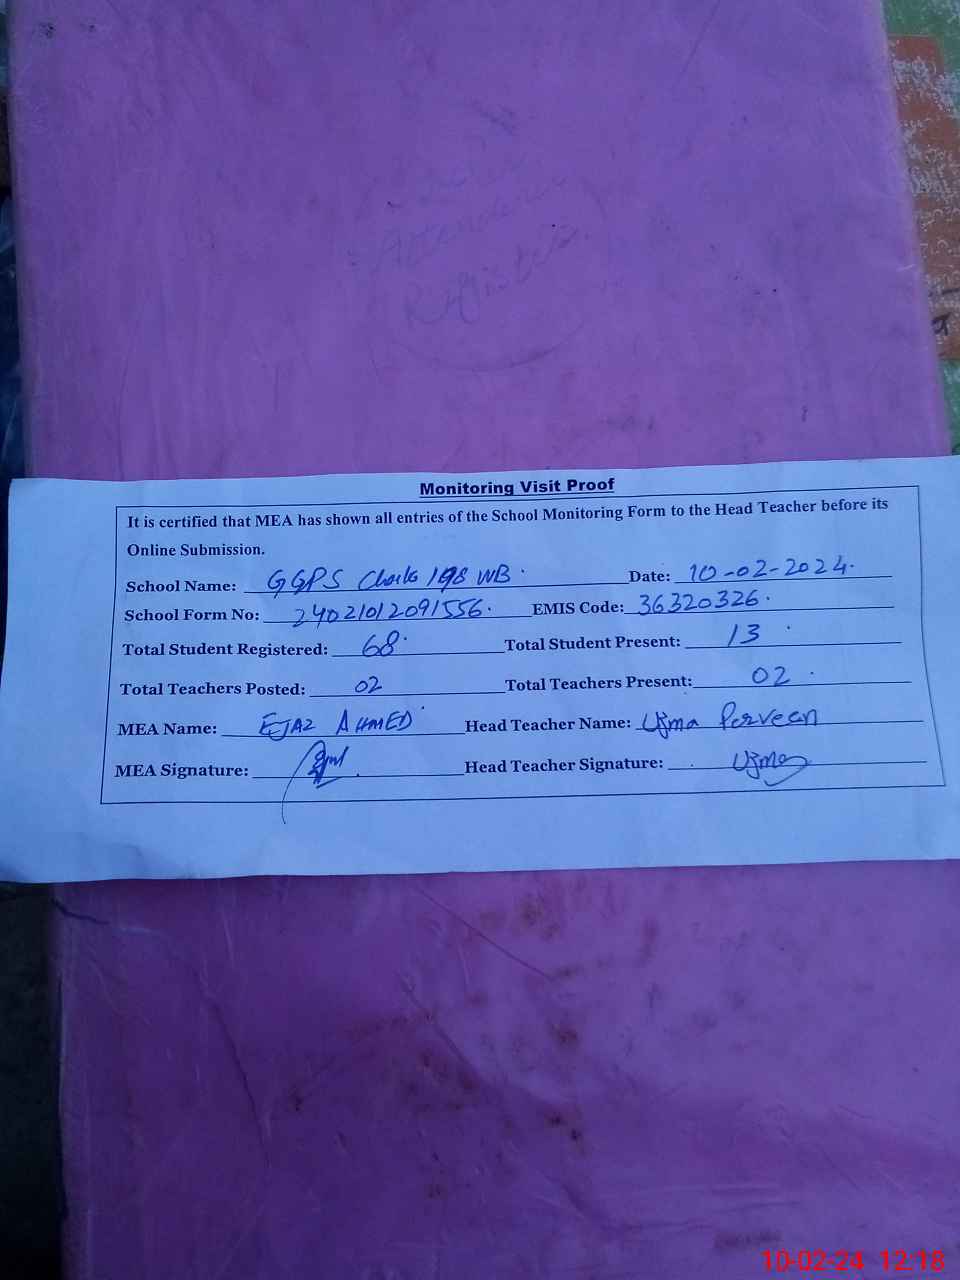 Attendance
Register
Monitoring Visit Proof
It is certified that MEA has shown all entries of the School Monitoring Form to the Head Teacher before its
Online Submission.
School Name: GGPS Chak 198 WB. Date: 10-02-2024.
School Form No: 24021012091556. EMIS Code: 36320326.
Total Student Registered: 68 Total Student Present: 13
Total Teachers Posted: 02 Total Teachers Present: 02
MEA Name: EJAZ AHMED Head Teacher Name: Uzma Perveen
MEA Signature: Head Teacher Signature: Uzma
10-02-24 12:18